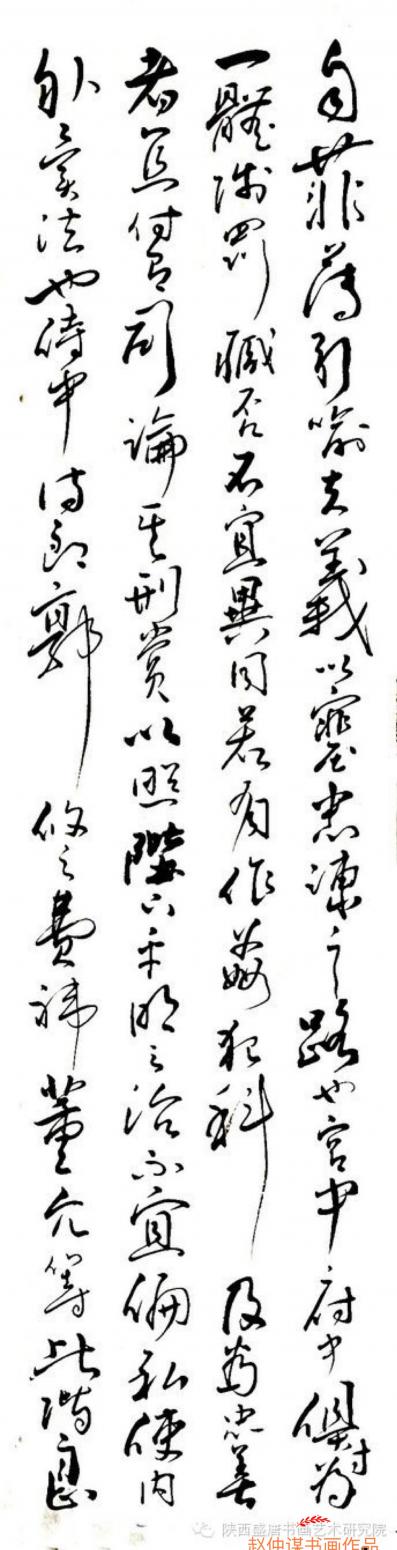 自菲薄引喻失義以塞忠諫之路也宮中府中俱為
一體陟罰臧否不宜異同若有作姦犯科及為忠善
者宜付有司論其刑賞以照陛下平明之治不宜偏私使內
外異法也侍中侍郎郭攸之費禕董允等此皆良
陕西盛唐书画艺术研究院
赵仲谋书画作品